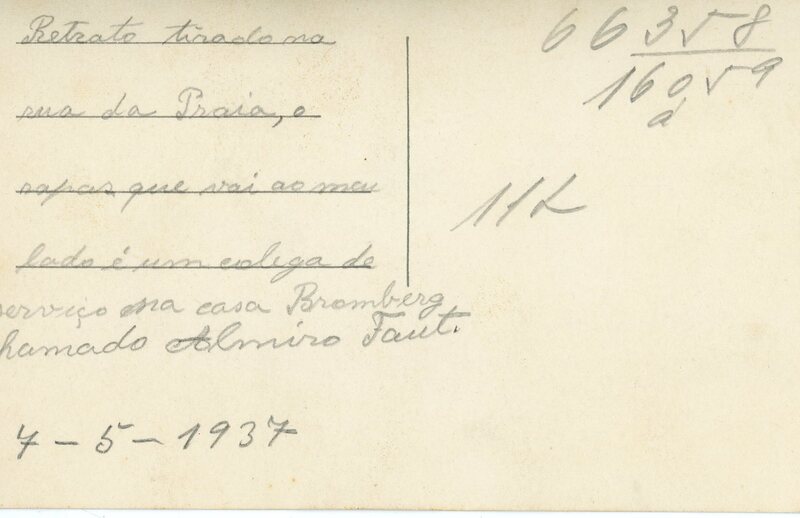 Retrato tirado na
rua da Praia, o
rapaz que vai ao meu
lado é um colega de
serviço na casa Bromberg
hamado Almiro Faut.
7 - 5 - 1937
66358
16059
a